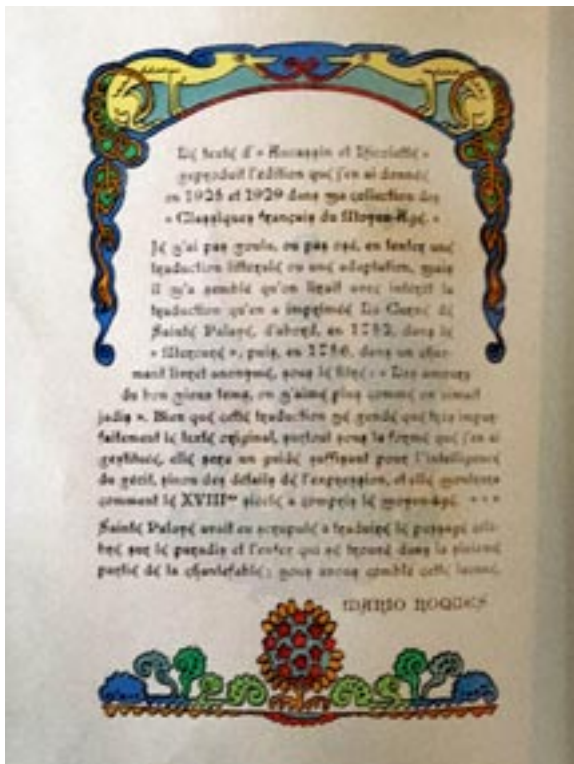 Le texte d'« Aucassin et Nicolette »
reproduit l'édition que j'en ai donnée
en 1925 et 1929 dans ma collection des
« Classiques français du Moyen-Age. »
Je n'ai pas voulu, ou pas osé, en tenter une
traduction littérale ou une adaptation, mais
il m'a semblé qu'on lirait avec intérêt la
traduction qu'en a imprimée La Curne de
Sainte Palaye, d'abord, en 1752, dans le
« Mercure », puis, en 1756, dans un char-
mant livret anonyme, sous le titre : « Les amours
du bon vieux tems, on n'aime plus comme on aimait
jadis ». Bien que cette traduction ne rende que très impar-
faitement le texte original, surtout sous la forme que j'en ai
restituée, elle sera un guide suffisant pour l'intelligence
du récit, sinon des détails de l'expression, et elle montrera
comment le XVIIIme siècle a compris le moyen-âge. * * *
Sainte Palaye avait eu scrupule à traduire le passage célè-
bre sur le paradis et l'enfer qui se trouve dans la sixième
partie de la chantefable ; nous avons comblé cette lacune.
MARIO ROQUES